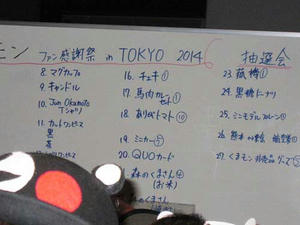 モン ファン感謝祭 in TOKYO 2014 抽選会
8. マグカップ
9. キャンドル
10. Jun Okamoto
Tシャツ
11. カットワンピース
黒
16. チェキ①
17. 馬肉カレーセット①
18. ありがトマト⑩
19. ミニカー②
20. QUOカード
森のくまさん④
(お米)
23.
24. 黒糖ドーナツ
25. ミニモデルフレーン①
26. 熊本
27. くまモン非売品グッズ